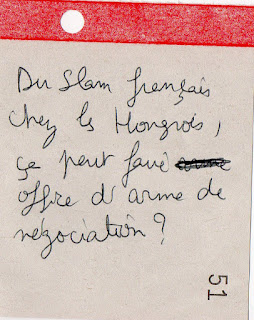 Du Slam français
chez les Hongrois,
ça peut faire
offre d'arme de
négociation ?
51